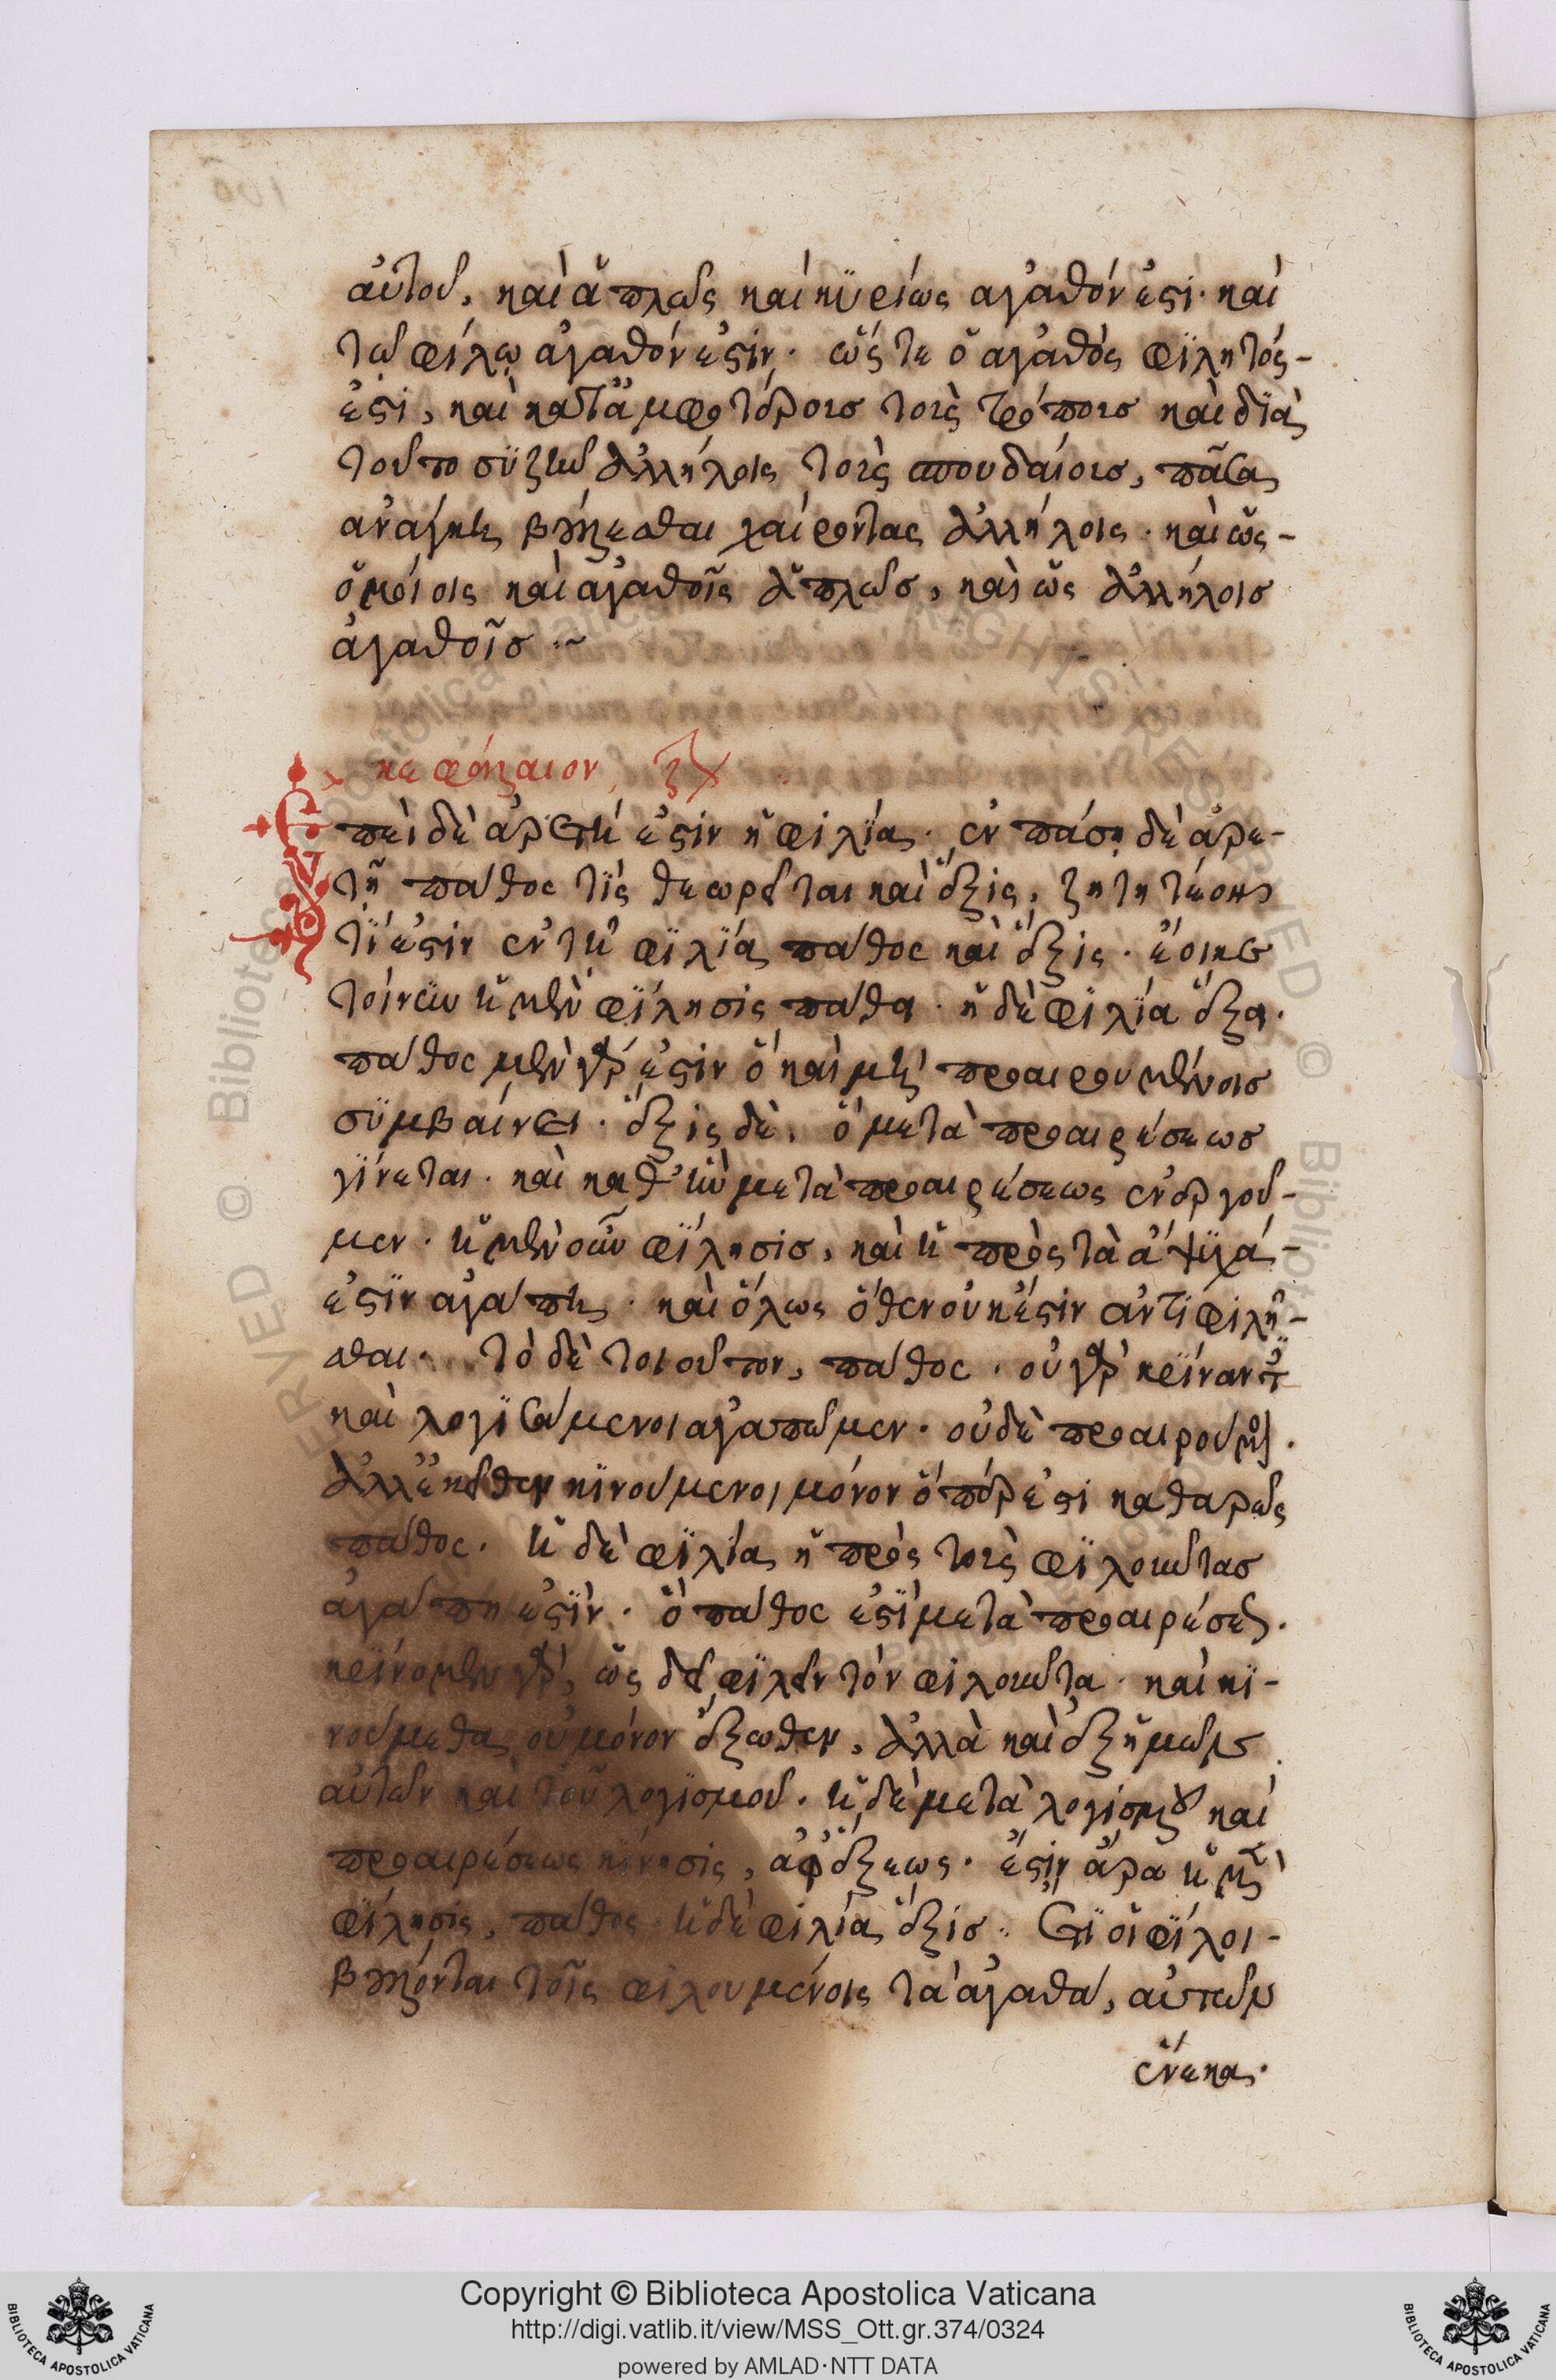 αὐτοῦ, καὶ ἁπλῶς καὶ κυρίως ἀγαθόν ἐστι· καὶ
τῷ φίλῳ ἀγαθόν ἐστιν· ὥστε ὁ ἀγαθὸς φιλητός
ἐστι, καὶ κατ' ἀμφοτέρους τοὺς τρόπους καὶ διὰ
τοῦτο συζῆν ἀλλήλοις τοὺς σπουδαίους, πᾶσα
ἀνάγκη βούλεσθαι χαίροντας ἀλλήλοις· καὶ ὡς
ὁμοίοις καὶ ἀγαθοῖς ἁπλῶσ, καὶ ὡς ἀλλήλοισ
ἀγαθοῖσ :~
κεφάλαιον, ζον
Ἐπεὶ δὲ ἀρετή ἐστιν ἡ φιλία· ἐν πάσῃ δὲ ἀρε-
τῇ πάθος τὶς θεωρεῖται καὶ ἕξις, ζητητέον
τί ἐστιν ἐν τῇ φιλία πάθος καὶ ἕξις· ἔοικε
τοίνυν ἡ μὲν φίλησις πάθει· ἡ δὲ φιλία ἕξει·
πάθος μὲν γάρ ἐστιν ὃ καὶ μὴ προαιρουμένοισ
συμβαίνει· ἕξις δὲ, ὃ μετὰ προαιρέσεωσ
γίνεται· καὶ καθ' ἣν μετὰ προαιρέσεως ἐνεργοῦ-
μεν· ἡ μὲν οὖν φίλησισ, καὶ ἡ πρὸς τὰ ἄψυχά
ἐστιν ἀγάπη· καὶ ὅλως ὅθεν οὐκ ἔστιν ἀντιφιλεῖ-
σθαι· τὸ δὲ τοιοῦτον, πάθος· οὐ γὰρ κρίναντες
καὶ λογισάμενοι ἀγαπῶμεν· οὐδὲ προαιρούμενοι·
ἀλλ' ἐκεῖθεν κινούμενοι μόνον ὅπέρ ἐστι καθαρῶς
πάθος· ἡ δὲ φιλία ἡ πρὸς τοὺς φιλοῦντασ
ἀγάπη ἐστὶν· ὃ πάθος ἐστὶ μετὰ προαιρέσεως·
κρίνομεν γὰρ, ὡς δεῖ φιλεῖν τὸν φιλοῦντα· καὶ κι-
νούμεθα οὐ μόνον ἔξωθεν, ἀλλὰ καὶ ἐξ ἡμῶν
αὐτῶν καὶ τοῦ λογισμοῦ· ἡ δὲ μετὰ λογισμοῦ καὶ
προαιρέσεως κίνησις, ἀφ' ἕξεως· ἔστιν ἄρα ἡ μὲν
φίλησις, πάθος· ἡ δὲ φιλία ἕξισ· Ἔτι οἱ φίλοι
βούλονται τοῖς φιλουμένοις τὰ ἀγαθὰ, αὐτῶν
ἕνεκα·
Copyright © Biblioteca Apostolica Vaticana
http://digi.vatlib.it/view/MSS_Ott.gr.374/0324
powered by AMLAD·NTT DATA
BIBLIOTECA APOSTOLICA VATICANA
BIBLIOTECA APOSTOLICA VATICANA